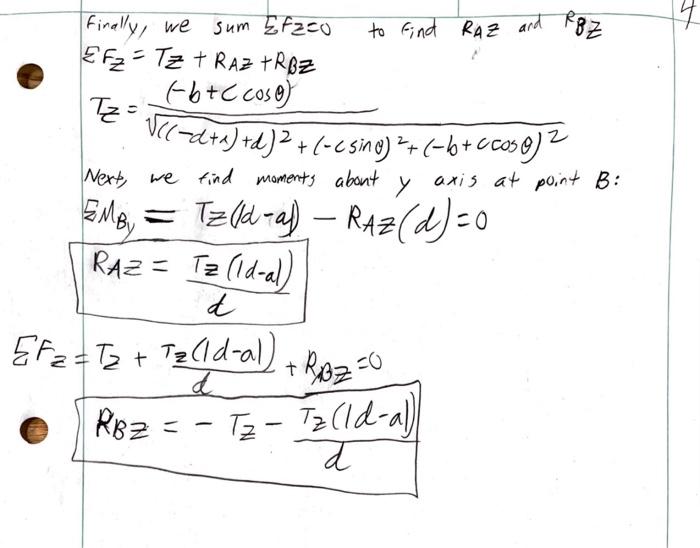 4
Finally, we sum ΣFz=0 to find RAZ and RBZ
ΣFz = Tz + RAZ + RBZ
Tz = (-b+c cosθ) / √((-d+x)+d)² + (-c sinθ)² + (-b+c cosθ)²
Next, we find moments about y axis at point B:
ΣMBy = Tz(|d-a|) - RAZ(d)=0
RAZ = Tz(|d-a|) / d
ΣFz = Tz + Tz(|d-a|) / d + RBZ=0
RBZ = - Tz - Tz(|d-a|) / d